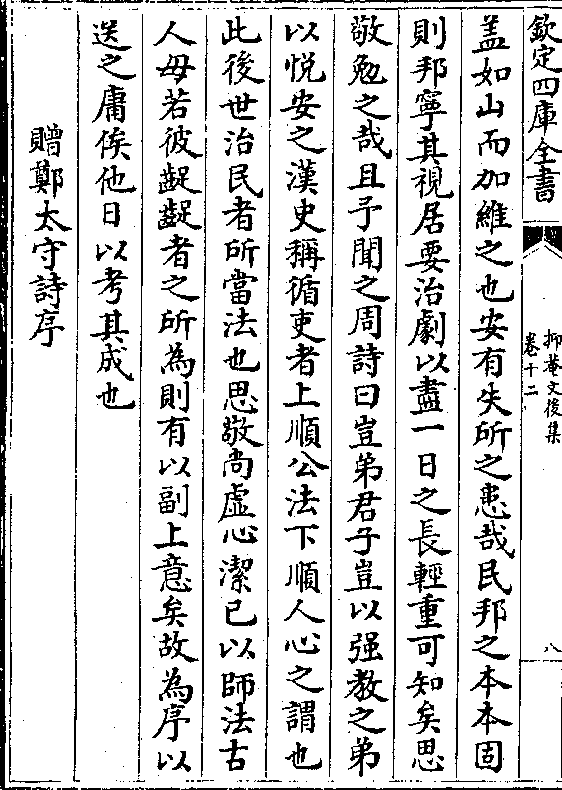 欽定四庫全書
抑菴文後集
卷十二
八
盖如山而加維之也安有失所之患哉民邦之本本固
則邦寧其視居要治劇以盡一日之長輕重可知矣思
敬勉之哉且予聞之周詩曰豈弟君子豈以强教之弟
以悦安之漢史稱循吏者上順公法下順人心之謂也
此後世治民者所當法也思敬尚虚心潔已以師法古
人毋若彼齪齪者之所為則有以副上意矣故為序以
送之庸俟他日以考其成也
贈鄭太守詩序